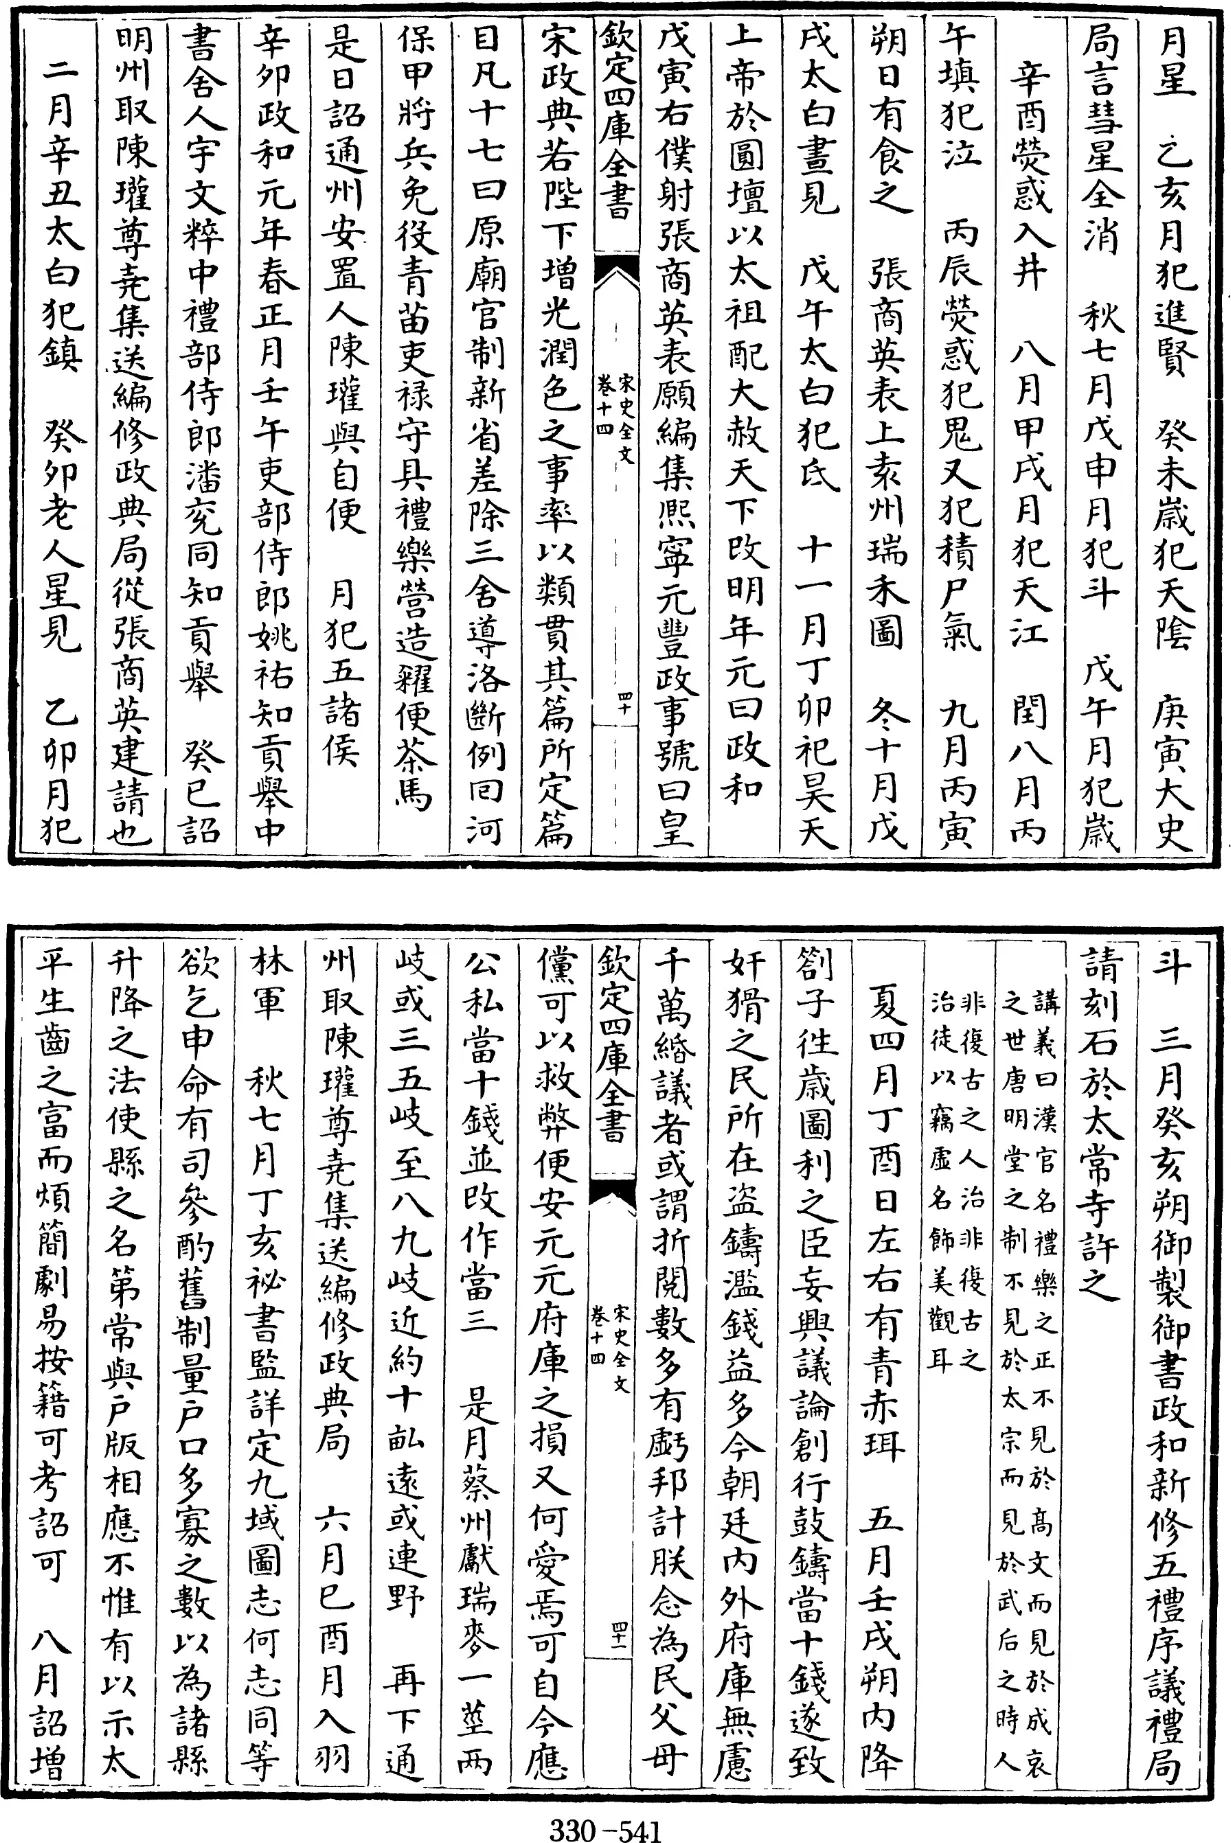 月星　乙亥月犯進賢　癸未嵗犯天陰　庚寅大史
局言彗星全消　秋七月戊申月犯斗　戊午月犯嵗
辛酉熒惑入井　八月甲戌月犯天江　閏八月丙
午填犯泣　丙辰熒惑犯鬼又犯積尸氣　九月丙寅
朔日有食之　張商英表上袁州瑞禾圖　冬十月戊
戌太白晝見　戊午太白犯氐　十一月丁卯祀昊天
上帝於圓壇以太祖配大赦天下改明年元曰政和
戊寅右僕射張商英表願編集熙寧元豐政事號曰皇
欽定四庫全書
宋史全文
卷十四
四十
宋政典若陛下增光潤色之事率以類貫其篇所定篇
目凡十七曰原廟官制新省差除三舍導洛斷例回河
保甲將兵免役青苗吏禄守具禮樂營造糴便茶馬
是日詔通州安置人陳瓘與自便　月犯五諸侯
辛卯政和元年春正月壬午吏部侍郎姚祐知貢舉中
書舍人宇文粹中禮部侍郎潘兖同知貢舉　癸已詔
明州取陳瓘尊堯集送編修政典局從張商英建請也
二月辛丑太白犯鎮　癸卯老人星見　乙卯月犯
斗　三月癸亥朔御製御書政和新修五禮序議禮局
請刻石於太常寺許之
講義曰漢官名禮樂之正不見於髙文而見於成哀
之世唐明堂之制不見於太宗而見於武后之時人
非復古之人治非復古之
治徒以竊虛名飾美觀耳
夏四月丁酉日左右有青赤珥　五月壬戌朔内降
劄子徃歲圖利之臣妄興議論創行鼓鑄當十錢遂致
奸猾之民所在盗鑄濫錢益多今朝廷内外府庫無慮
千萬緡議者或謂折閱數多有虧邦計朕念為民父母
欽定四庫全書
宋史全文
卷十四
四十一
儻可以救弊便安元元府庫之損又何愛焉可自今應
公私當十錢並改作當三　是月蔡州獻瑞麥一莖两
岐或三五岐至八九岐近約十畝遠或連野　再下通
州取陳瓘尊堯集送編修政典局　六月已酉月入羽
林軍　秋七月丁亥祕書監詳定九域圖志何志同等
欲乞申命有司參酌舊制量户口多寡之數以為諸縣
升降之法使縣之名第常與户版相應不惟有以示太
平生齒之富而煩簡劇易按籍可考詔可　八月詔增
330-541